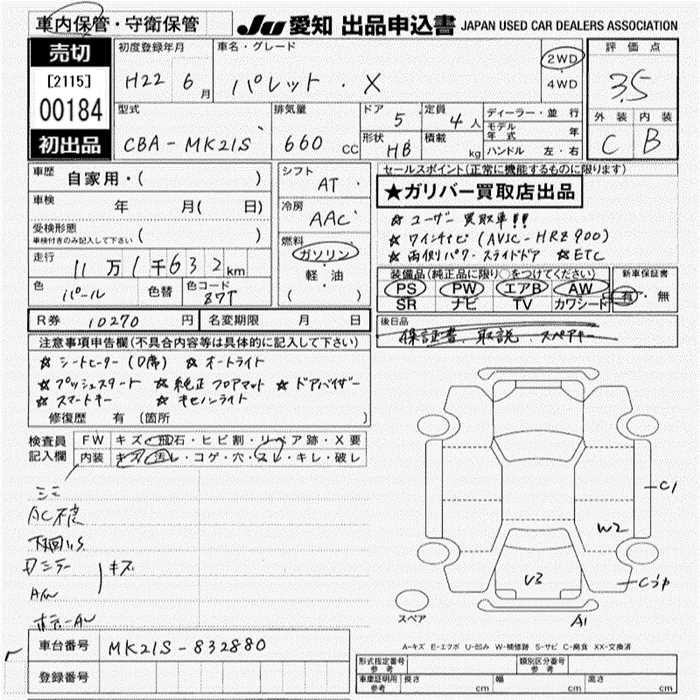 車内保管・守衛保管
JU 愛知 出品申込書 JAPAN USED CAR DEALERS ASSOCIATION
売切
[2115]
00184
初出品
初度登録年月
H22 6月
車名・グレード
パレット・X
2WD
・4WD
評価点
3.5
外装 内装
C B
型式
CBA-MK21S
排気量
660 CC
ドア 5
定員 4人
形状 HB
積載 kg
ディーラー・並行
モデル年式 年
ハンドル 左・右
車歴 自家用・( )
車検 年 月( 日)
受検形態
車検付きのみ記入して下さい ( )
走行 11万1千632km
色 パール 色替 色コード 87T
R券 10270円 名変期限 月 日
シフト
AT
冷房
AAC
燃料
ガソリン
・軽・油
( )
セールスポイント(正常に機能するものに限ります)
★ガリバー買取店出品
☆ ユーザー買取車!!
☆ ワインナビ(AVIC-HRZ900)
☆ 両側パワースライドドア ☆ETC
装備品(純正品に限り○をつけてください)
PS PW エアB AW
SR ナビ TV カワシート
新車保証書
有・無
後日品
保証書、取説、スペアキー
注意事項申告欄(不具合内容等は具体的に記入して下さい)
☆ シートヒーター(D席) ☆ オートライト
☆ プッシュスタート ☆ 純正フロアマット ☆ ドアバイザー
☆ スマートキー ☆ キセノンライト
修復歴 有(箇所
検査員記入欄
FW キズ・飛石・ヒビ割・リペア跡・X要
内装 キズ・汚レ・コゲ・穴・スレ・キレ・破レ
AC不良
下廻りS
ミラー
キズ
AW
C1
W2
U3
C
A1
スペア
A-キズ E-エクボ U-凹み W-補修跡 S-サビ C-腐食 XX-交換済
車台番号 MK21S-832880
登録番号
形式指定番号 参考
類別区分番号 参考
車庫証明用 参考 長さ cm 幅 cm 高さ cm